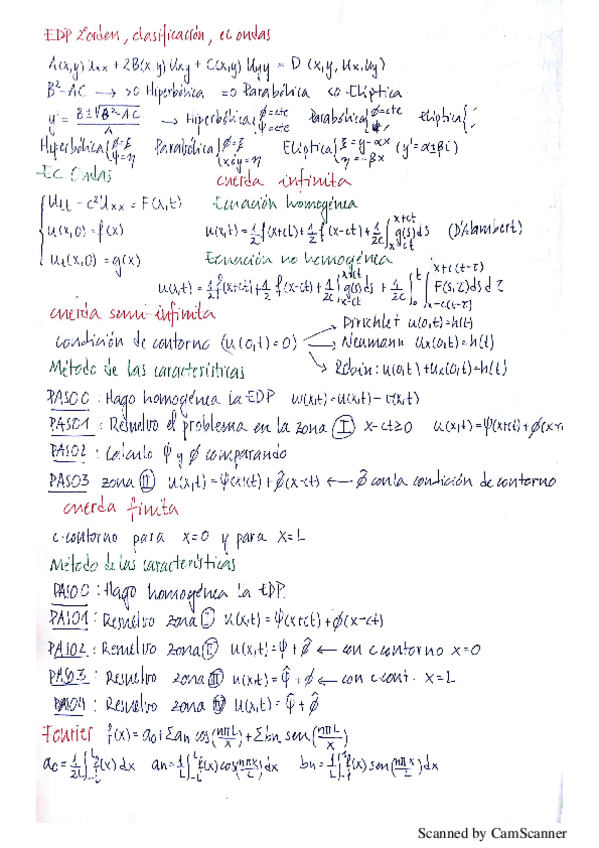 EDP 2ºorden, clasificación, ec ondas
A(x,y)Uxx + 2B(x,y)Uxy + C(x,y)Uyy = D (x,y,Ux,Uy)
B²-AC → >0 Hiperbólica =0 Parabólica <0 Elíptica
y' = B±√B²-AC / A → Hiperbólica{ φ=cte ψ=cte Parabólica{ φ=cte ψ; Elíptica{ ;
Hiperbólica{ φ=ξ ψ=η Parabólica{ φ=ξ x ó y=η Elíptica{ ξ=y-αx η=-βx (y'=α±βi)
Ec. Ondas
cuerda infinita
Utt - c²Uxx = F(x,t)
Ecuación homogénea
u(x,0)=f(x)
u(x,t)=½f(x+ct)+½f(x-ct)+1/2c ∫x-ct^x+ct g(s)ds (D'Alambert)
Ut(x,0)=g(x)
Ecuación no homogénea
u(x,t)=½f(x+ct)+½f(x-ct)+1/2c ∫x-ct^x+ct g(s)ds + 1/2c ∫0^t ∫x-c(t-τ)^x+c(t-τ) F(s,τ)dsdτ
cuerda semi-infinita
condición de contorno (u(0,t)=0)
→ Dirichlet u(0,t)=h(t)
→ Neumann Ux(0,t)=h(t)
→ Robin: u(0,t)+Ux(0,t)=h(t)
Método de las características
PASO0: Hago homogénea la EDP w(x,t)=u(x,t)-v(x,t)
PASO1: Resuelvo el problema en la zona I x-ct≥0 u(x,t)=ψ(x+ct)+φ(x
PASO2: Cálculo ψ y φ comparando
PASO3 zona II u(x,t)=ψ(x+ct)+φ̂(x-ct) ← φ̂ con la condición de contorno
cuerda finita
c.contorno para x=0 y para x=L
Método de las características
PASO0: Hago homogénea la EDP.
PASO1: Resuelvo zona I u(x,t)=ψ(x+ct)+φ(x-ct)
PASO2: Resuelvo zona II u(x,t)=ψ+φ̂ ← con c contorno x=0
PASO3: Resuelvo zona III u(x,t)=ψ̂+φ ← con c cont. x=L
PASO4: Resuelvo zona IV u(x,t)=ψ̂+φ̂
Fourier f(x)=a0+Σan cos(nπL/x)+Σbn sen(nπL/x)
a0=1/2L ∫-L^L f(x)dx an=1/L ∫-L^L f(x)cos(nπx/L)dx bn=1/L ∫-L^L f(x)sen(nπx/L)dx
Scanned by CamScanner